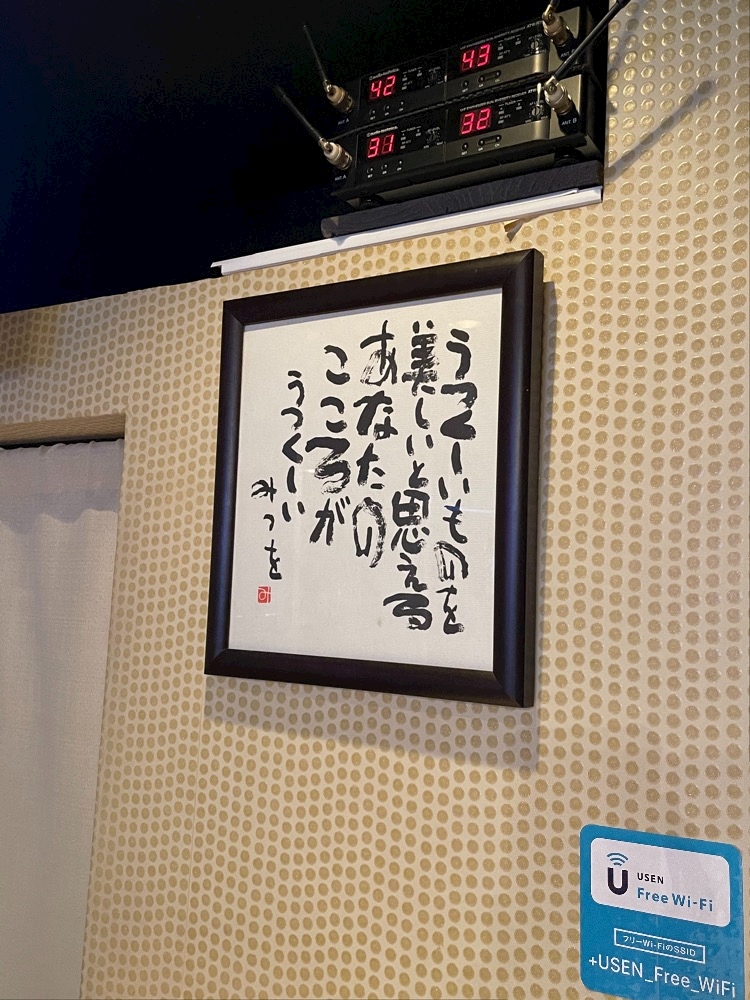 audio-technica
42
43
ANT B
audio-technica
31
32
ANT A
ANT B
うつくしいものを
美しいと思える
あなたの
こころが
うつくしい
みつを
USEN
Free Wi-Fi
フリーWi-FiのSSID
+USEN_Free_WiFi